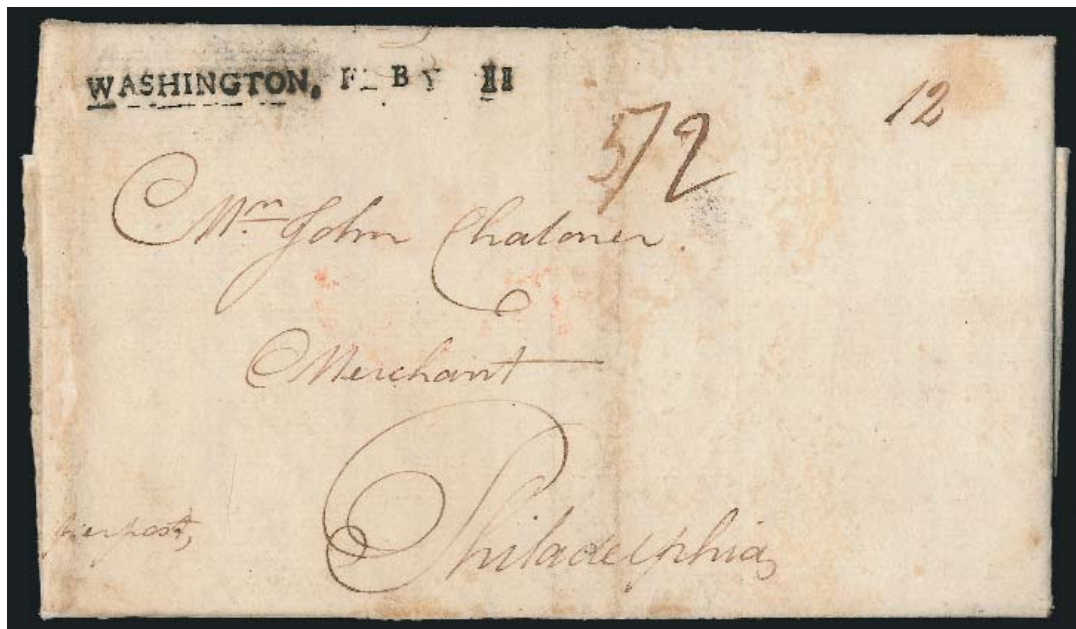 WASHINGTON, FEBY 11
5/2
12
Mr. John Chaloner
Merchant
Philadelphia